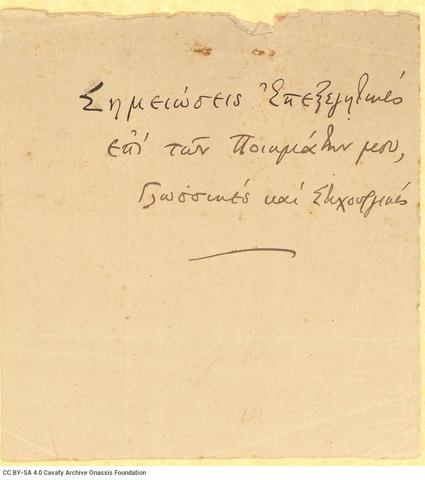 Σημειώσεις Ἐπεξηγητικές
ἐπί τῶν Ποιημάτων μου,
Γλωσσικές καί Στιχουργικές
CC BY-SA 4.0 Cavafy Archive Onassis Foundation